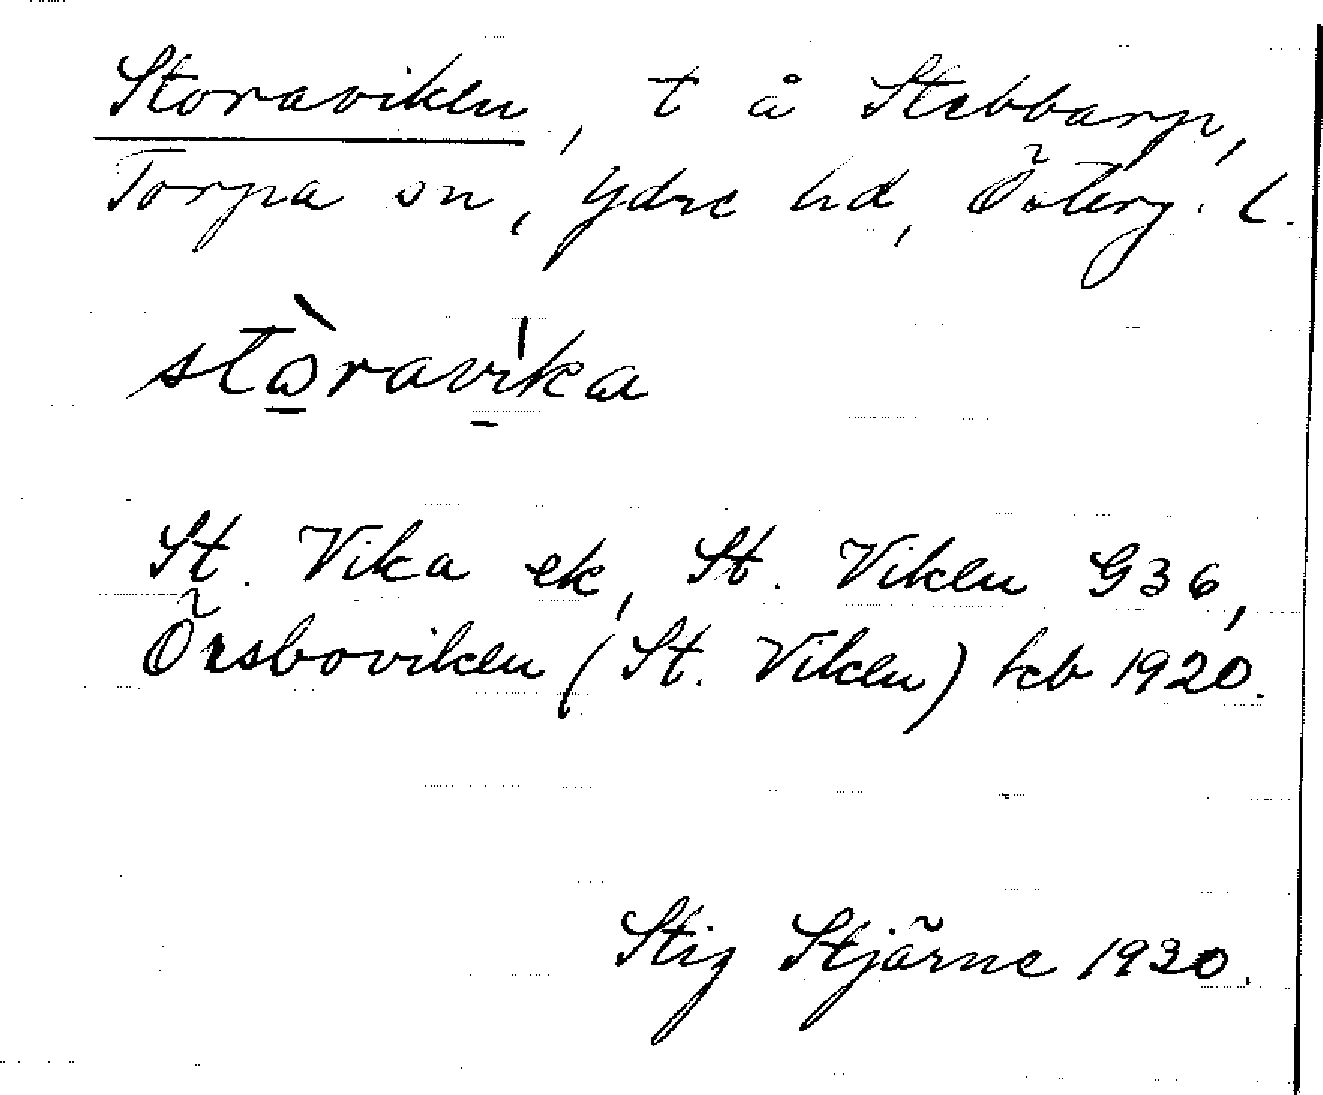 Storaviken, t å Stebbarp,
Torpa sn, Ydre hd, Österg. l.
stὼ̱ravi̱̍ka
St. Vika ek, St. Viken G36,
Örsboviken (St. Viken) hcb 1920.
Stig Stjärne 1930.